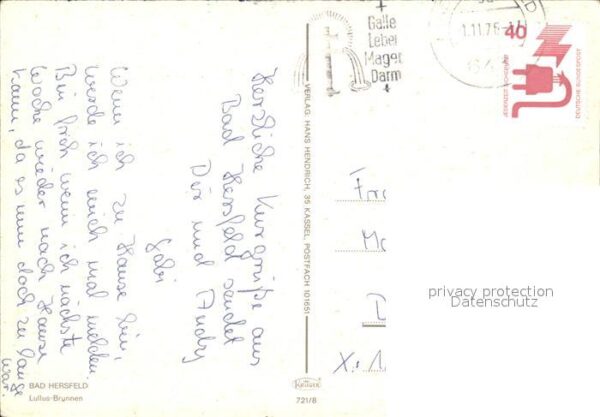 Herzliche Kurgrüße aus
Bad Hersfeld sendet
Dir und Andy
Gabi
Wenn ich zu Hause bin,
werde ich mich mal melden.
Bin froh wenn ich nächste
Woche wieder nach Hause
kann, da es nun doch zu lange
war.
BAD HERSFELD
Lullus-Brunnen
VERLAG: HANS HENDRICH, 35 KASSEL, POSTFACH 101651
Krüger
721/8
Galle
Leber
Magen
Darm
1.11.76
40
JEDERZEIT SICHERHEIT
DEUTSCHE BUNDESPOST
Fr
Ma
D
privacy protection
Datenschutz